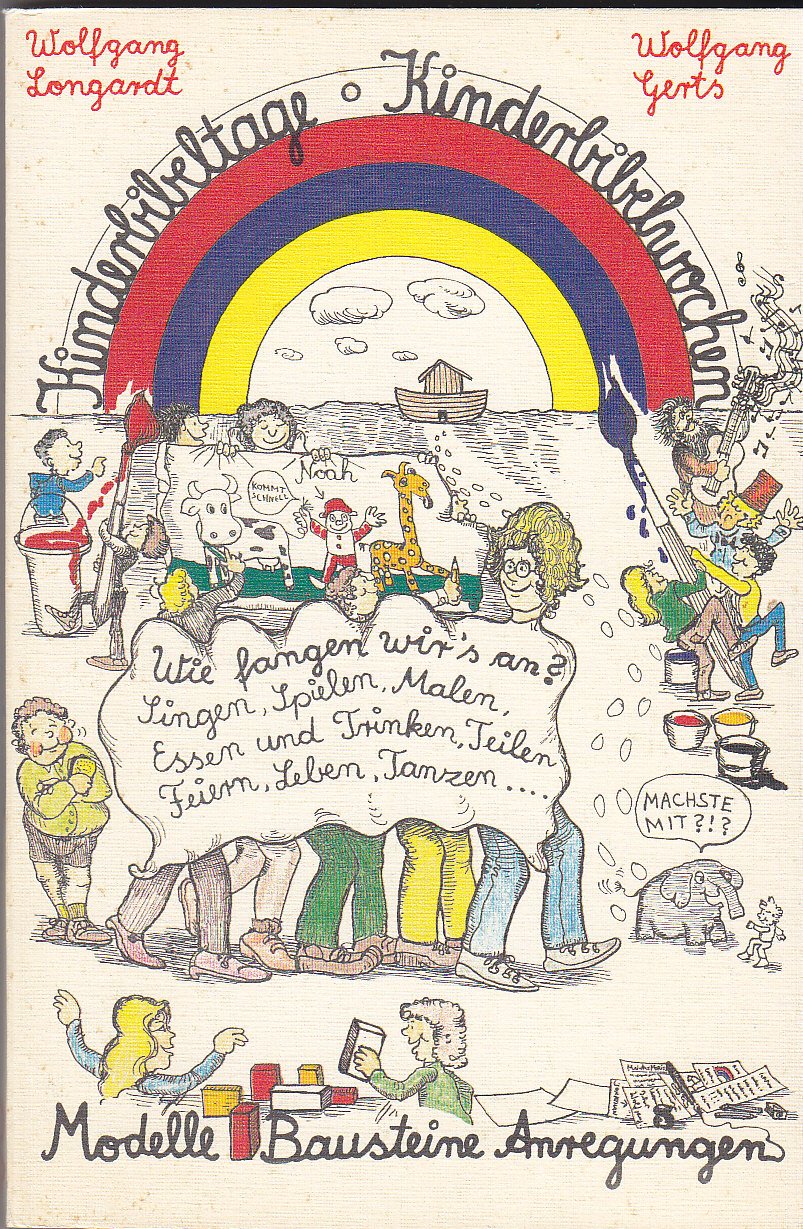 Wolfgang
Longardt
Wolfgang
Gerts
Kinderbibeltage o Kinderbibelwochen
Noah
KOMMT
SCHNELL
Wie fangen wir's an?
Singen, Spielen, Malen,
Essen und Trinken, Teilen
Feiern, Leben, Tanzen....
MACHSTE
MIT?!?
Modelle Bausteine Anregungen